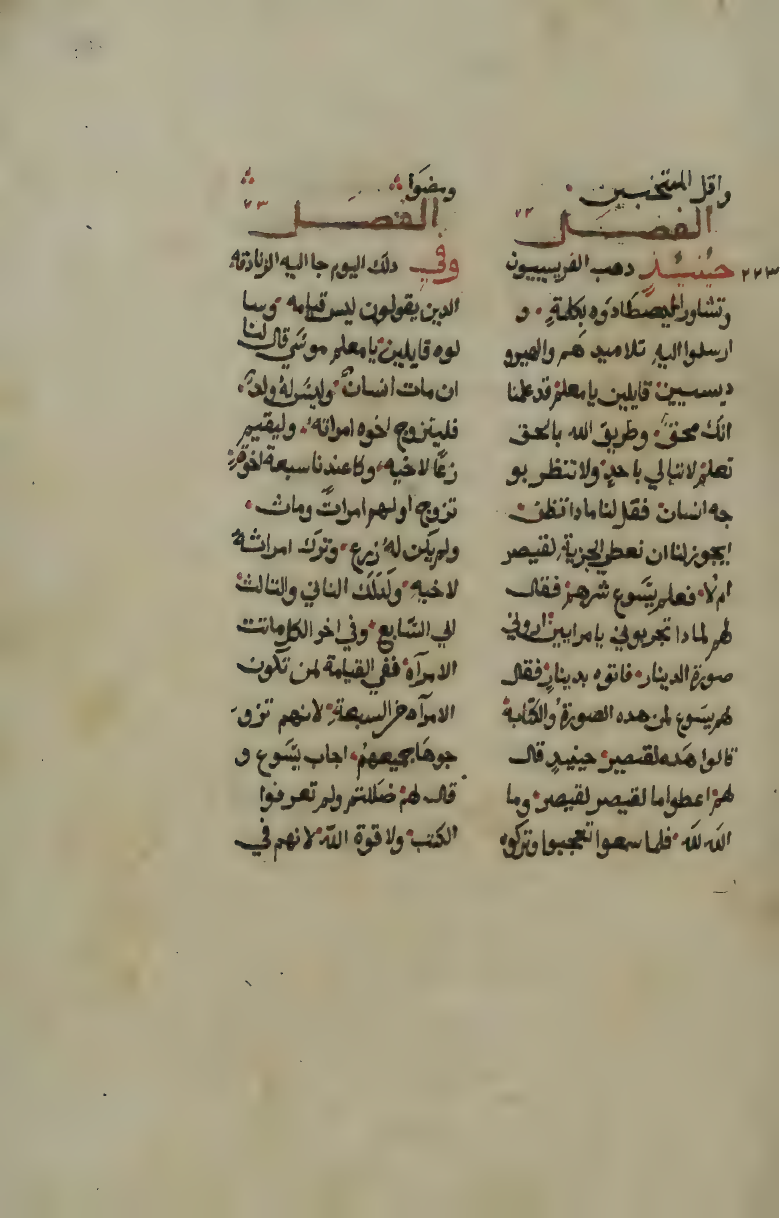 واقل المنتخبين
الفصل ٧٢
٢٢٣ حينيذ دهب الفريسييون
وتشاوروا ليصطادوه بكلمة و
ارسلوا اليه تلاميدهم والهيرو
ديسيين قايلين يا معلم قد علمنا
انك محق وطريق الله بالحق
تعلم لا تبالي باحد ولا تنظر بو
جه انسان فقل لنا مادا تظن
ايجوز لنا ان نعطي الجزية لقيصر
ام لا فعلم يسوع شرهم فقال
لهم لمادا تجربوني يا مرايين اروني
صورة الدينار فاتوه بدينار فقال
لهم يسوع لمن هده الصورة والكتابة
قالوا هده لقيصر حينيد قال
لهم اعطوا ما لقيصر لقيصر وما
لله لله فلما سمعوا تعجبوا وتركوه
ومضوا
الفصل ٧٣
وفي دلك اليوم جا اليه الزنادقه
الدين يقولون ليس قيامه وسا
لوه قايلين يا معلم موسي قال لنا
ان مات انسان وليس له ولد
فليتزوج اخوه امراته وليقيم
زرعا لاخيه وكا عندنا سبعة اخوة
تزوج اولهم امراة ومات
ولم يكن له زرع وترك امراته
لاخيه وكدلك الثاني والثالث
الي السابع وفي اخر الكل ماتت
الامرآه ففي القيامة لمن تكون
الامرآه من السبعة لانهم تزو
جوها جميعهم اجاب يسوع و
قال لهم ضللتم ولم تعرفوا
الكتب ولا قوة الله لانهم في